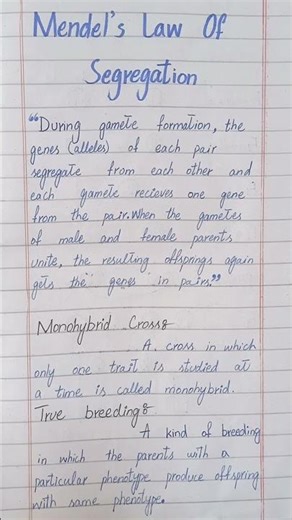 Mendel's Law Of
Segregation
"During gamete formation, the
genes (alleles) of each pair
segregate from each other and
each gamete recieves one gene
from the pair. When the gametes
of male and female parents
unite, the resulting offsprings again
gets the genes in pairs."
Monohybrid Cross:
A cross in which
only one trait is studied at
a time is called monohybrid.
True breeding:
A kind of breeding
in which the parents with a
particular phenotype produce offspring
with same phenotype.